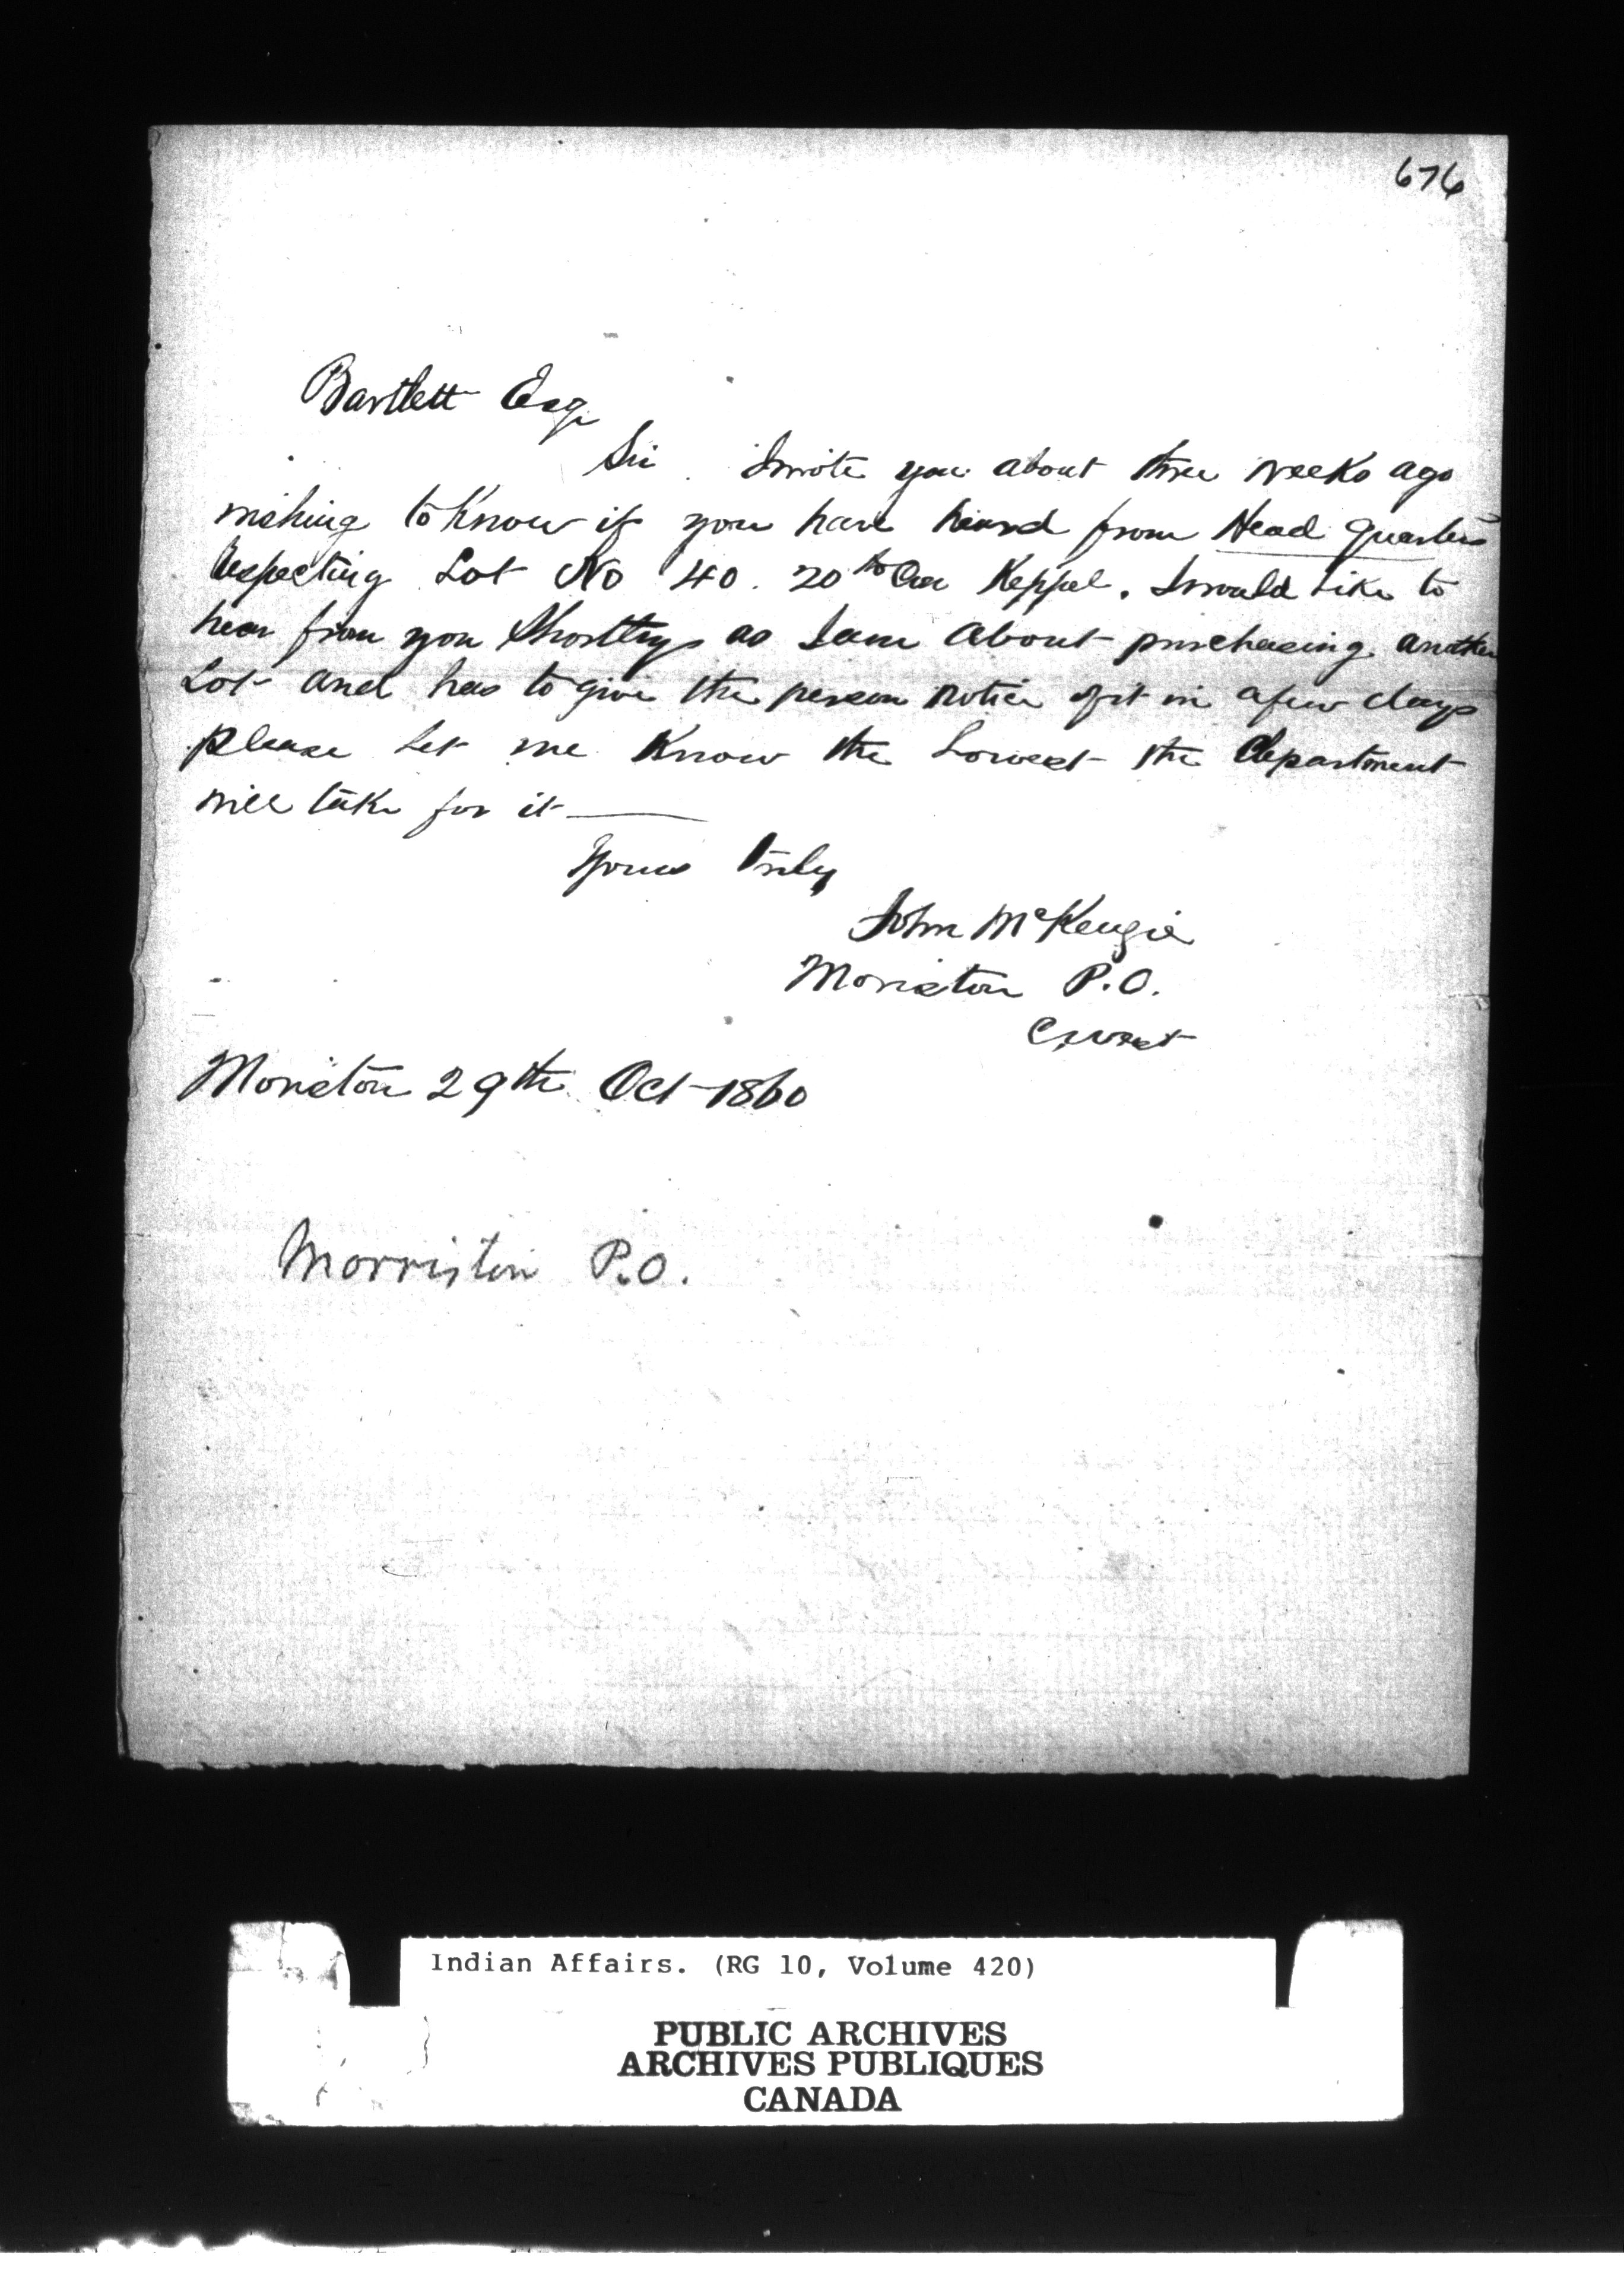 676
Bartlett Esqr
Sir. I wrote you about three weeks ago
wishing to know if you have heard from Head Quarters
Respecting Lot No 40. 20th Con Keppel. I would Like to
hear from you Shortly as I am About purchasing another
Lot and has to give the person Notice of it in a few days
please Let me Know the Lowest the department
will take for it
Yours Truly
John McKenzie
Moriston P.O.
C West
Moriston 29th Oct 1860
Morriston P.O.
Indian Affairs. (RG 10, Volume 420)
PUBLIC ARCHIVES
ARCHIVES PUBLIQUES
CANADA